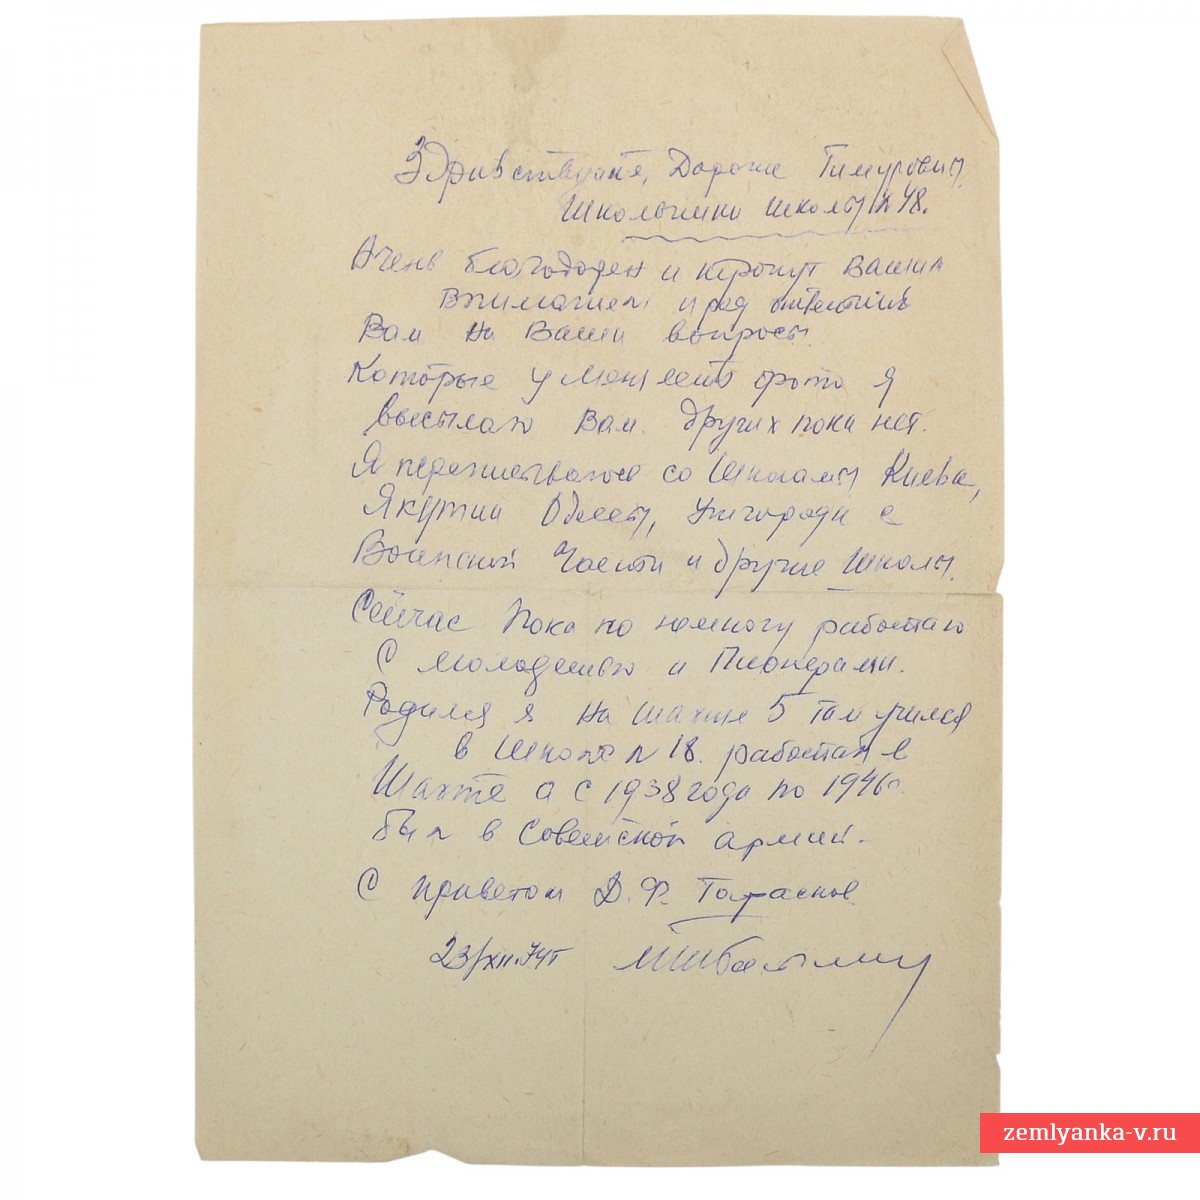 Здравствуйте, Дорогие Тимуровцы
Школьники школы N 48.
Очень благодарен и тронут Вашим
Вниманием и рад ответить
Вам на Ваши вопросы.
Которые у меня есть фото я
высылаю Вам. других пока нет.
Я переписываюсь со Школами Киева,
Якутии Одессы, Ужгорода с
Воинской Части и другие Школы.
Сейчас Пока по немногу работаю
С молодежью и Пионерами.
Родился я на шахте 5 там учился
в Школе N 18. работал в
Шахте а с 1938 года по 1946г.
был в Советской армии.
С приветом Д.Ф.
23/XII.74г
zemlyanka-v.ru